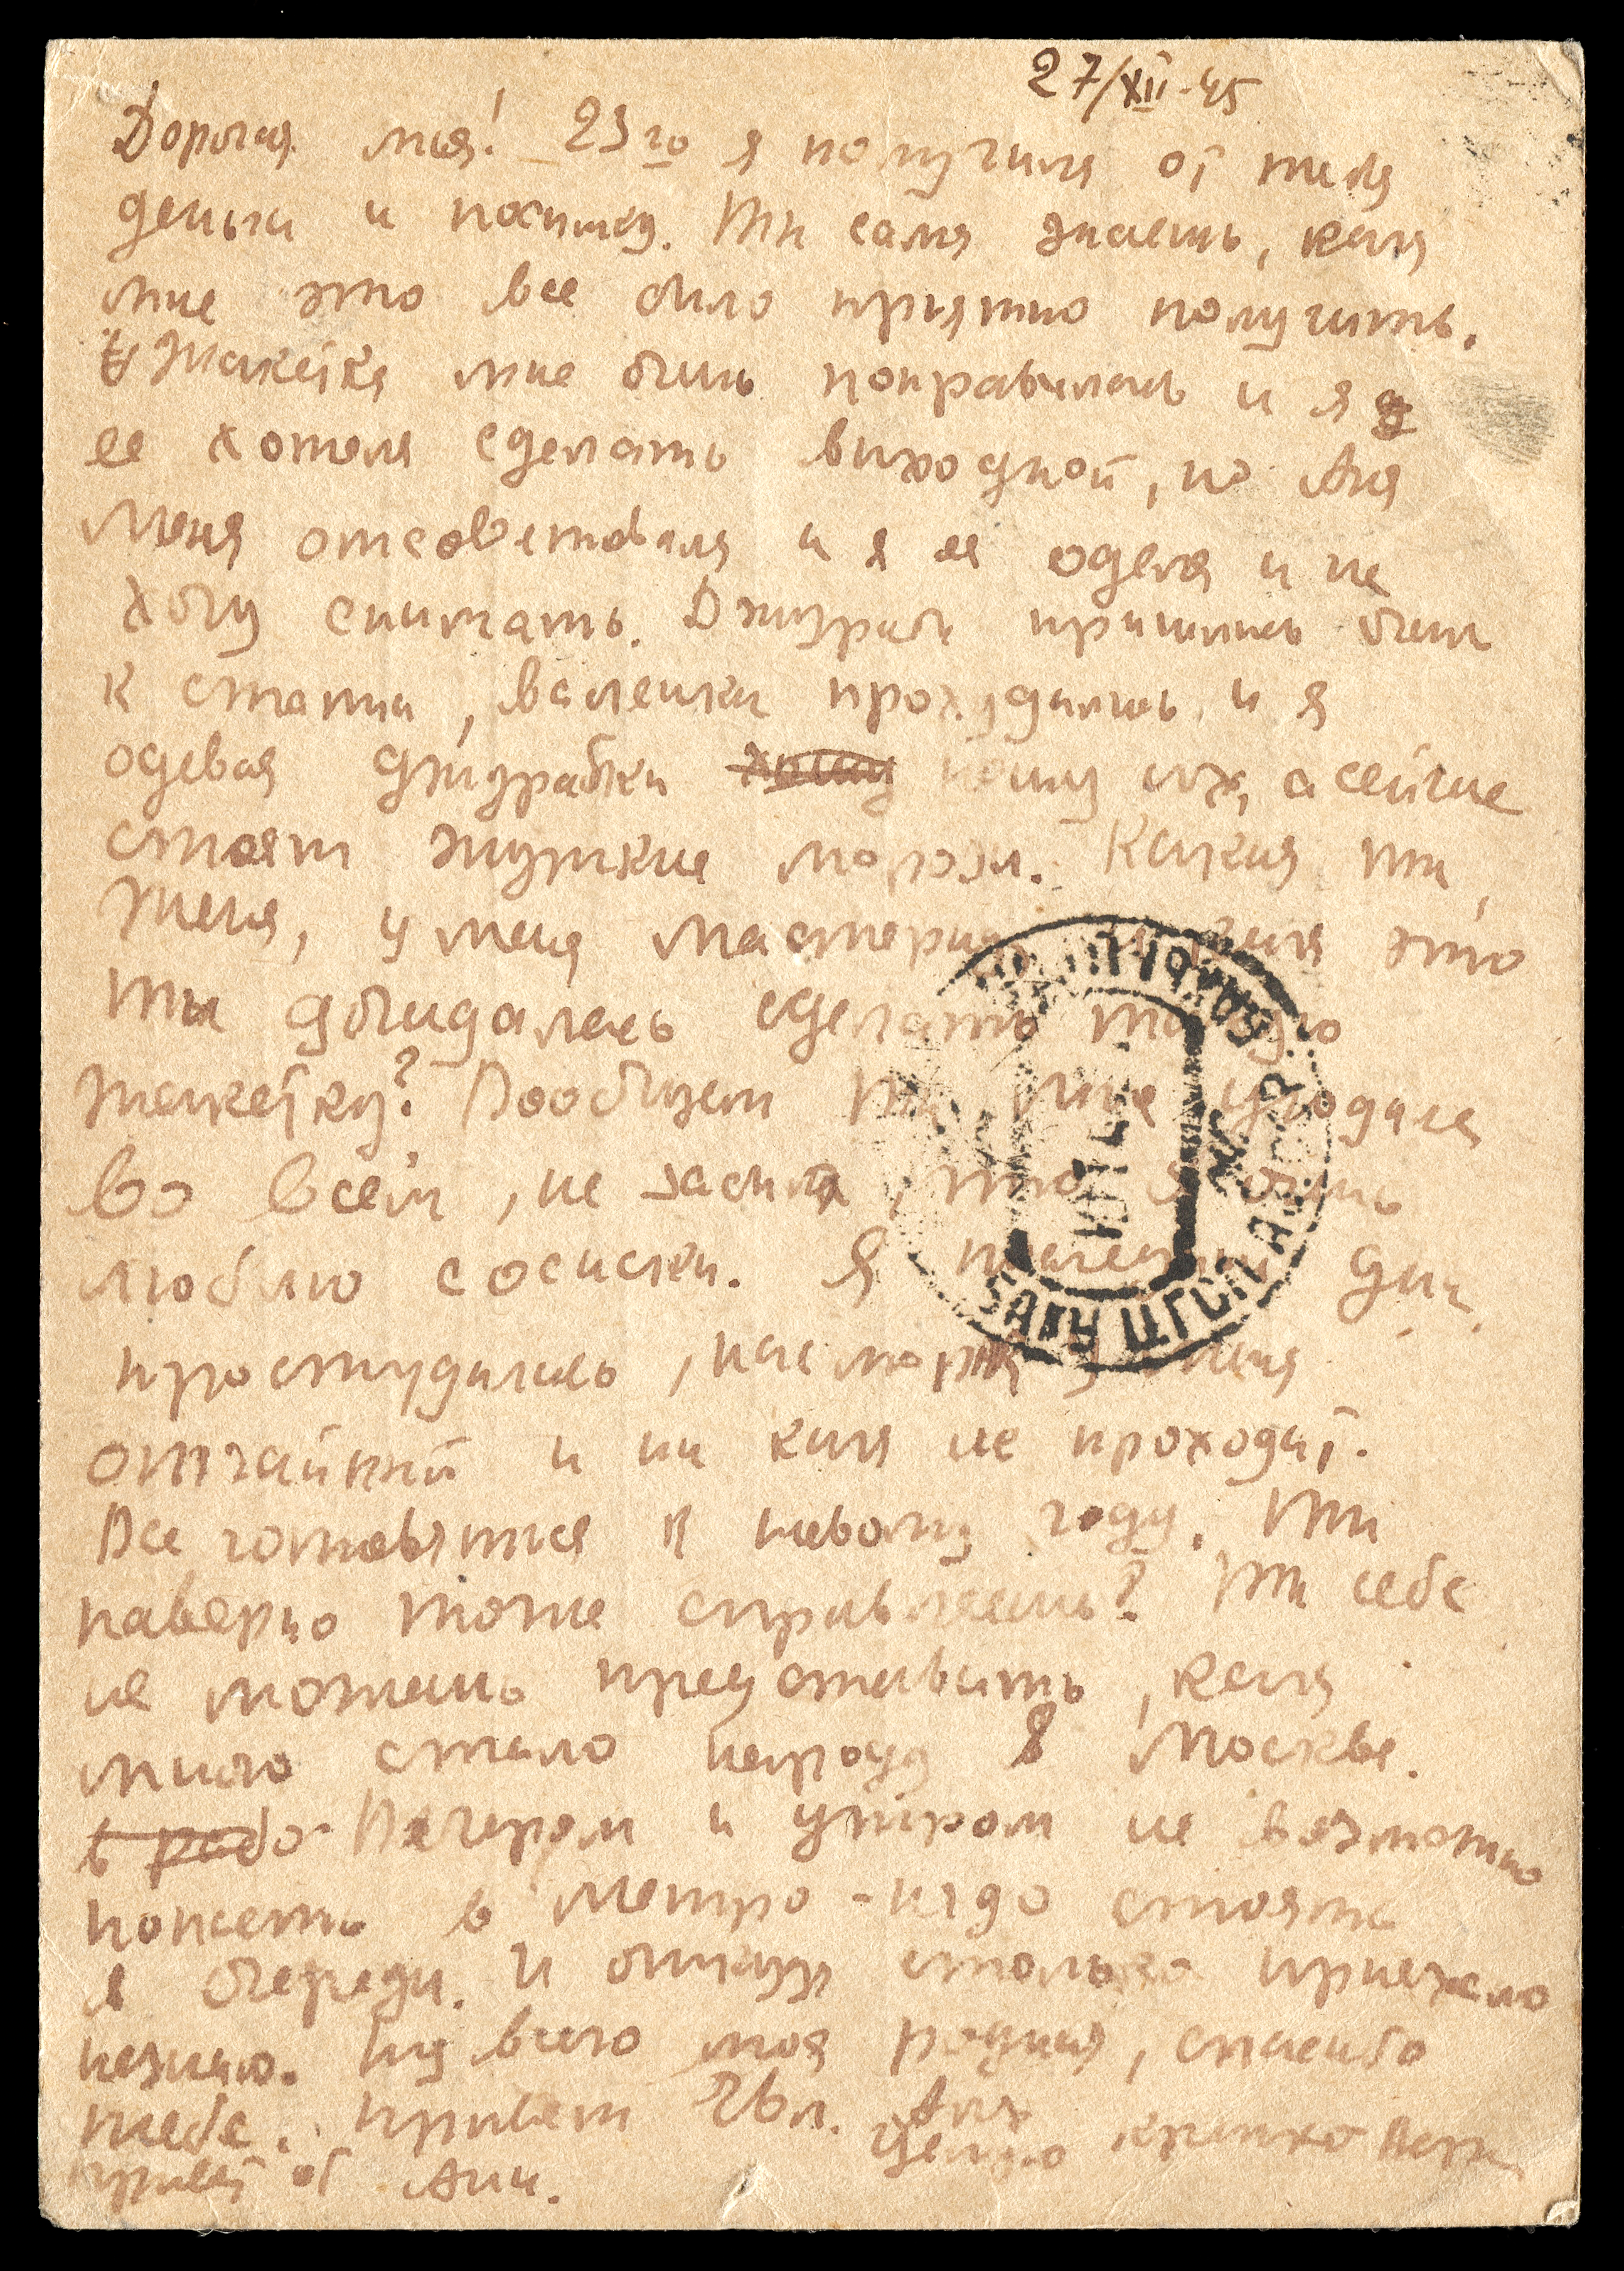 27/XII-45
Дорогая моя! 23го я получила от тебя
деньги и посылку. Ты сама знаешь, как
мне это все было приятно получить.
Жакетка мне очень понравилась и я
ее хотела сделать выходной, но Аня
меня отсоветовала и я ее одела и не
хочу снимать. Джурабы пришлись очень
к стати, валенки прохудились и я
одевая джурабки ношу их, а сейчас
стоят жуткие морозы. Какая ты,
Женя, у меня мастерица и как это
ты догадалась сделать такую
жакетку? Вообщем ты мне угодила
во всем, не забыла, что я очень
люблю сосиски. Я на этих днях
простудилась, насморк у меня
отчайный и ни как не проходит.
Все готовятся к новому году. Ты
наверно тоже справляешь? Ты себе
не можешь представить, как
много стало народу в Москве.
в рабо Вечером и утром не возможно
попасть в метро - надо стоять
в очереди. И откуда столько приехало
незнаю. Ну всего моя родная, спасибо
тебе. Привет Аня
Целую крепко Вера
Привет от Ани.